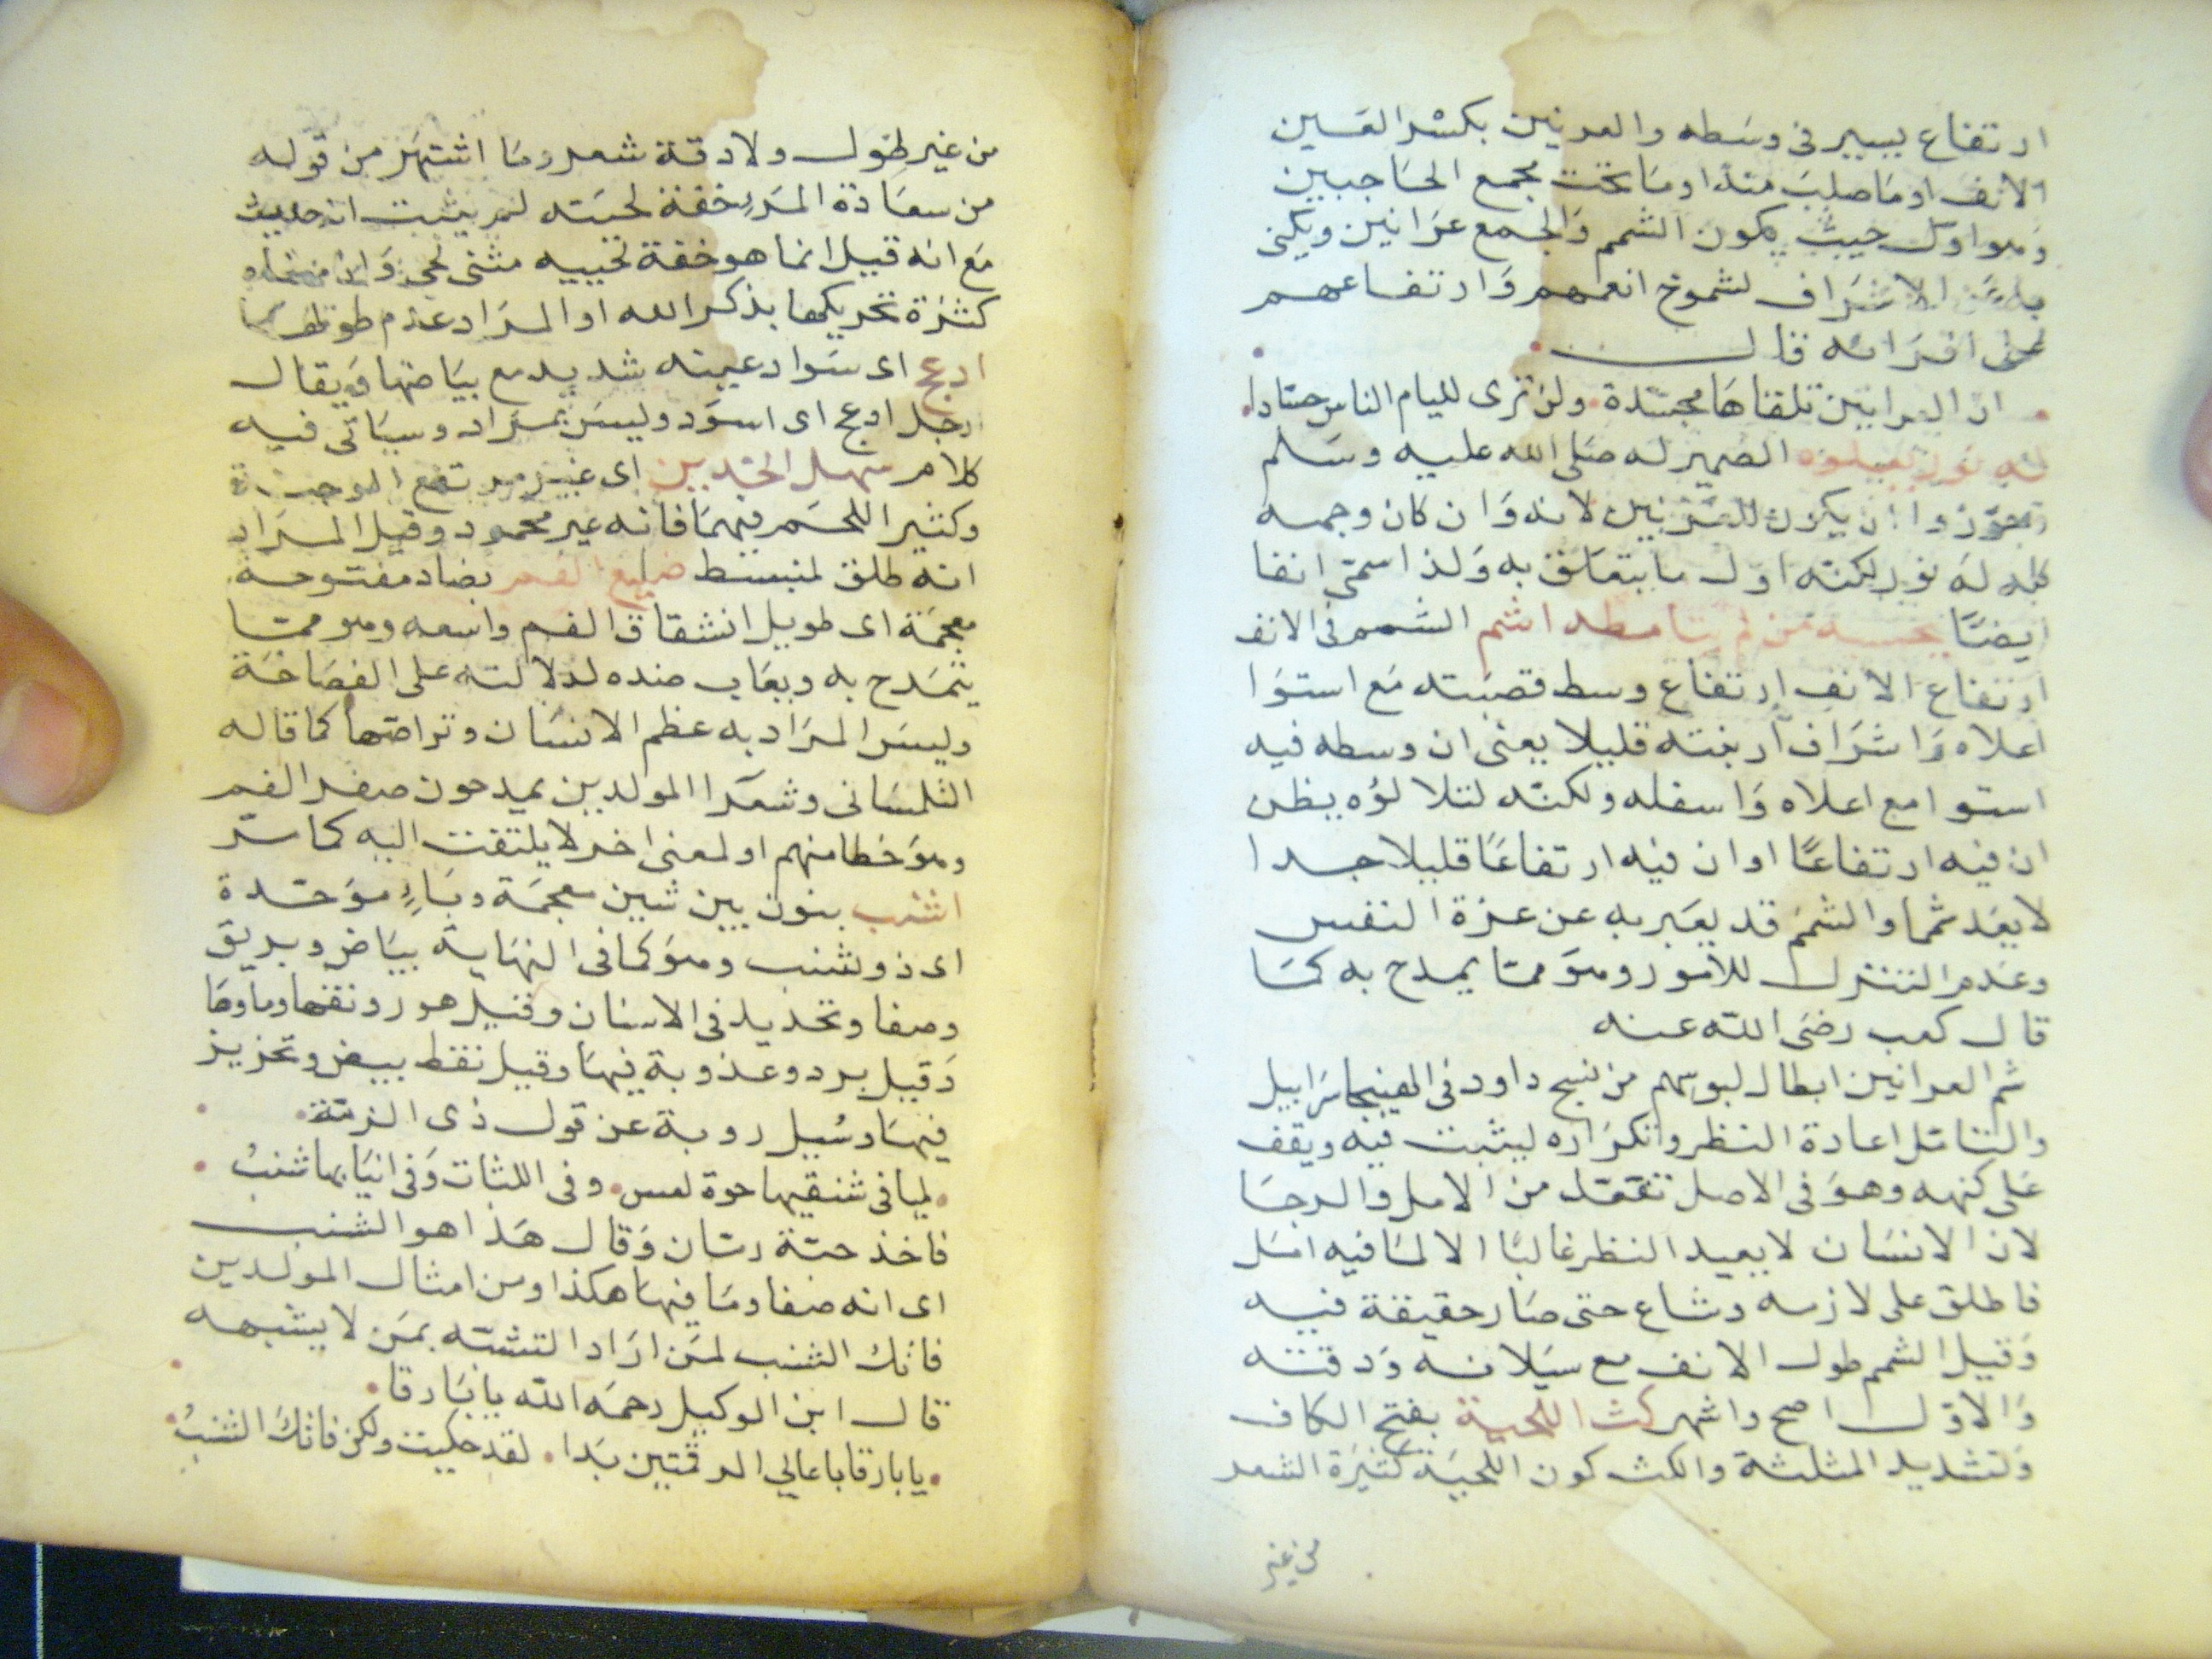 ارتفاع يسير في وسطه والعرنين بكسر العين
الانف او ما صلب منه او ما تحت مجمع الحاجبين
وهو اول حيث يكون الشمم والجمع عرانين ويكنى
به عن الاشراف لشموخ انفهم وارتفاعهم
على اقرانه قال
ان العرانين تلقاها محسدة ولن ترى لليام الناس حسادا
له نور يعلوه الضمير له صلى الله عليه وسلم
وجوزوا ان يكون للعرنين لانه وان كان وجهه
كله له نور لكنه اول ما يتعلق به ولذا سمى انفا
ايضا يحسبه من لم يتامله اشم الشمم في الانف
ارتفاع الانف ارتفاع وسط قصبته مع استوا
اعلاه واشراف ارنبته قليلا يعنى ان وسطه فيه
استوا مع اعلاه واسفله ولكنه لتلالؤه يظن
ان فيه ارتفاعا او ان فيه ارتفاعا قليلا جدا
لا يعد شمما والشمم قد يعبر به عن عزة النفس
وعدم التنزل للامور وهو مما يمدح به كما
قال كعب رضى الله عنه
شم العرانين ابطال لبوسهم من نسج داود في الهيجا سرابيل
والتامل اعادة النظر وتكراره ليثبت فيه ويقف
على كنهه وهو في الاصل تفعل من الامل والرجا
لان الانسان لا يعيد النظر غالبا الا لما فيه امل
فاطلق على لازمه وشاع حتى صار حقيقة فيه
وقيل الشمم طول الانف مع سيلانه ودقته
والاول اصح واشهر كث اللحية بفتح الكاف
وتشديد المثلثة والكث كون اللحية كثيرة الشعر
من غير
من غير طول ولا دقة شعر وما اشتهر من قوله
من سعادة المرء خفة لحيته لم يثبت انه حديث
مع انه قيل انما هو خفة لحييه مثنى لحى وان معناه
كثرة تحريكها بذكر الله او المراد عدم طولها
ادعج اى سواد عينه شديد مع بياضها ويقال
رجل ادعج اى اسود وليس بمراد وسياتى فيه
كلام سهل الخدين اى غير مرتفع الوجنة
وكثير اللحم فيهما فانه غير محمود وقيل المراد
انه طلق منبسط ضليع الفم بضاد مفتوحة
معجمة اى طويل انشقاق الفم واسعه وهو مما
يتمدح به ويعاب ضده لدلالته على الفصاحة
وليس المراد به عظم الاسنان وتراصها كما قاله
التلمسانى وشعرا المولدين يمدحون صغر الفم
وهو خطا منهم او لمعنى اخر لا يلتفت اليه كما ستر
اشنب بنون بين شين معجمة وباء موحدة
اى ذو شنب وهو كما في النهاية بياض وبريق
وصفا وتحديد في الاسنان وقيل هو رونقها وماوها
وقيل برد وعذوبة فيها وقيل نقط بيض وتحزيز
فيها وسئيل روبة عن قول ذى الرمة
لميا في شفتيها حوة لعس وفي اللثات وفي انيابها شنب
فاخذ حبة رمان وقال هذا هو الشنب
اى انه صفا وما فيها هكذا ومن امثال المولدين
فاتك الشنب لمن اراد التشبه بمن لا يشبهه
قال ابن الوكيل رحمه الله يا بارقا
يا بارقا باعالي الرقمتين بدا لقد حكيت ولكن فاتك الشنب